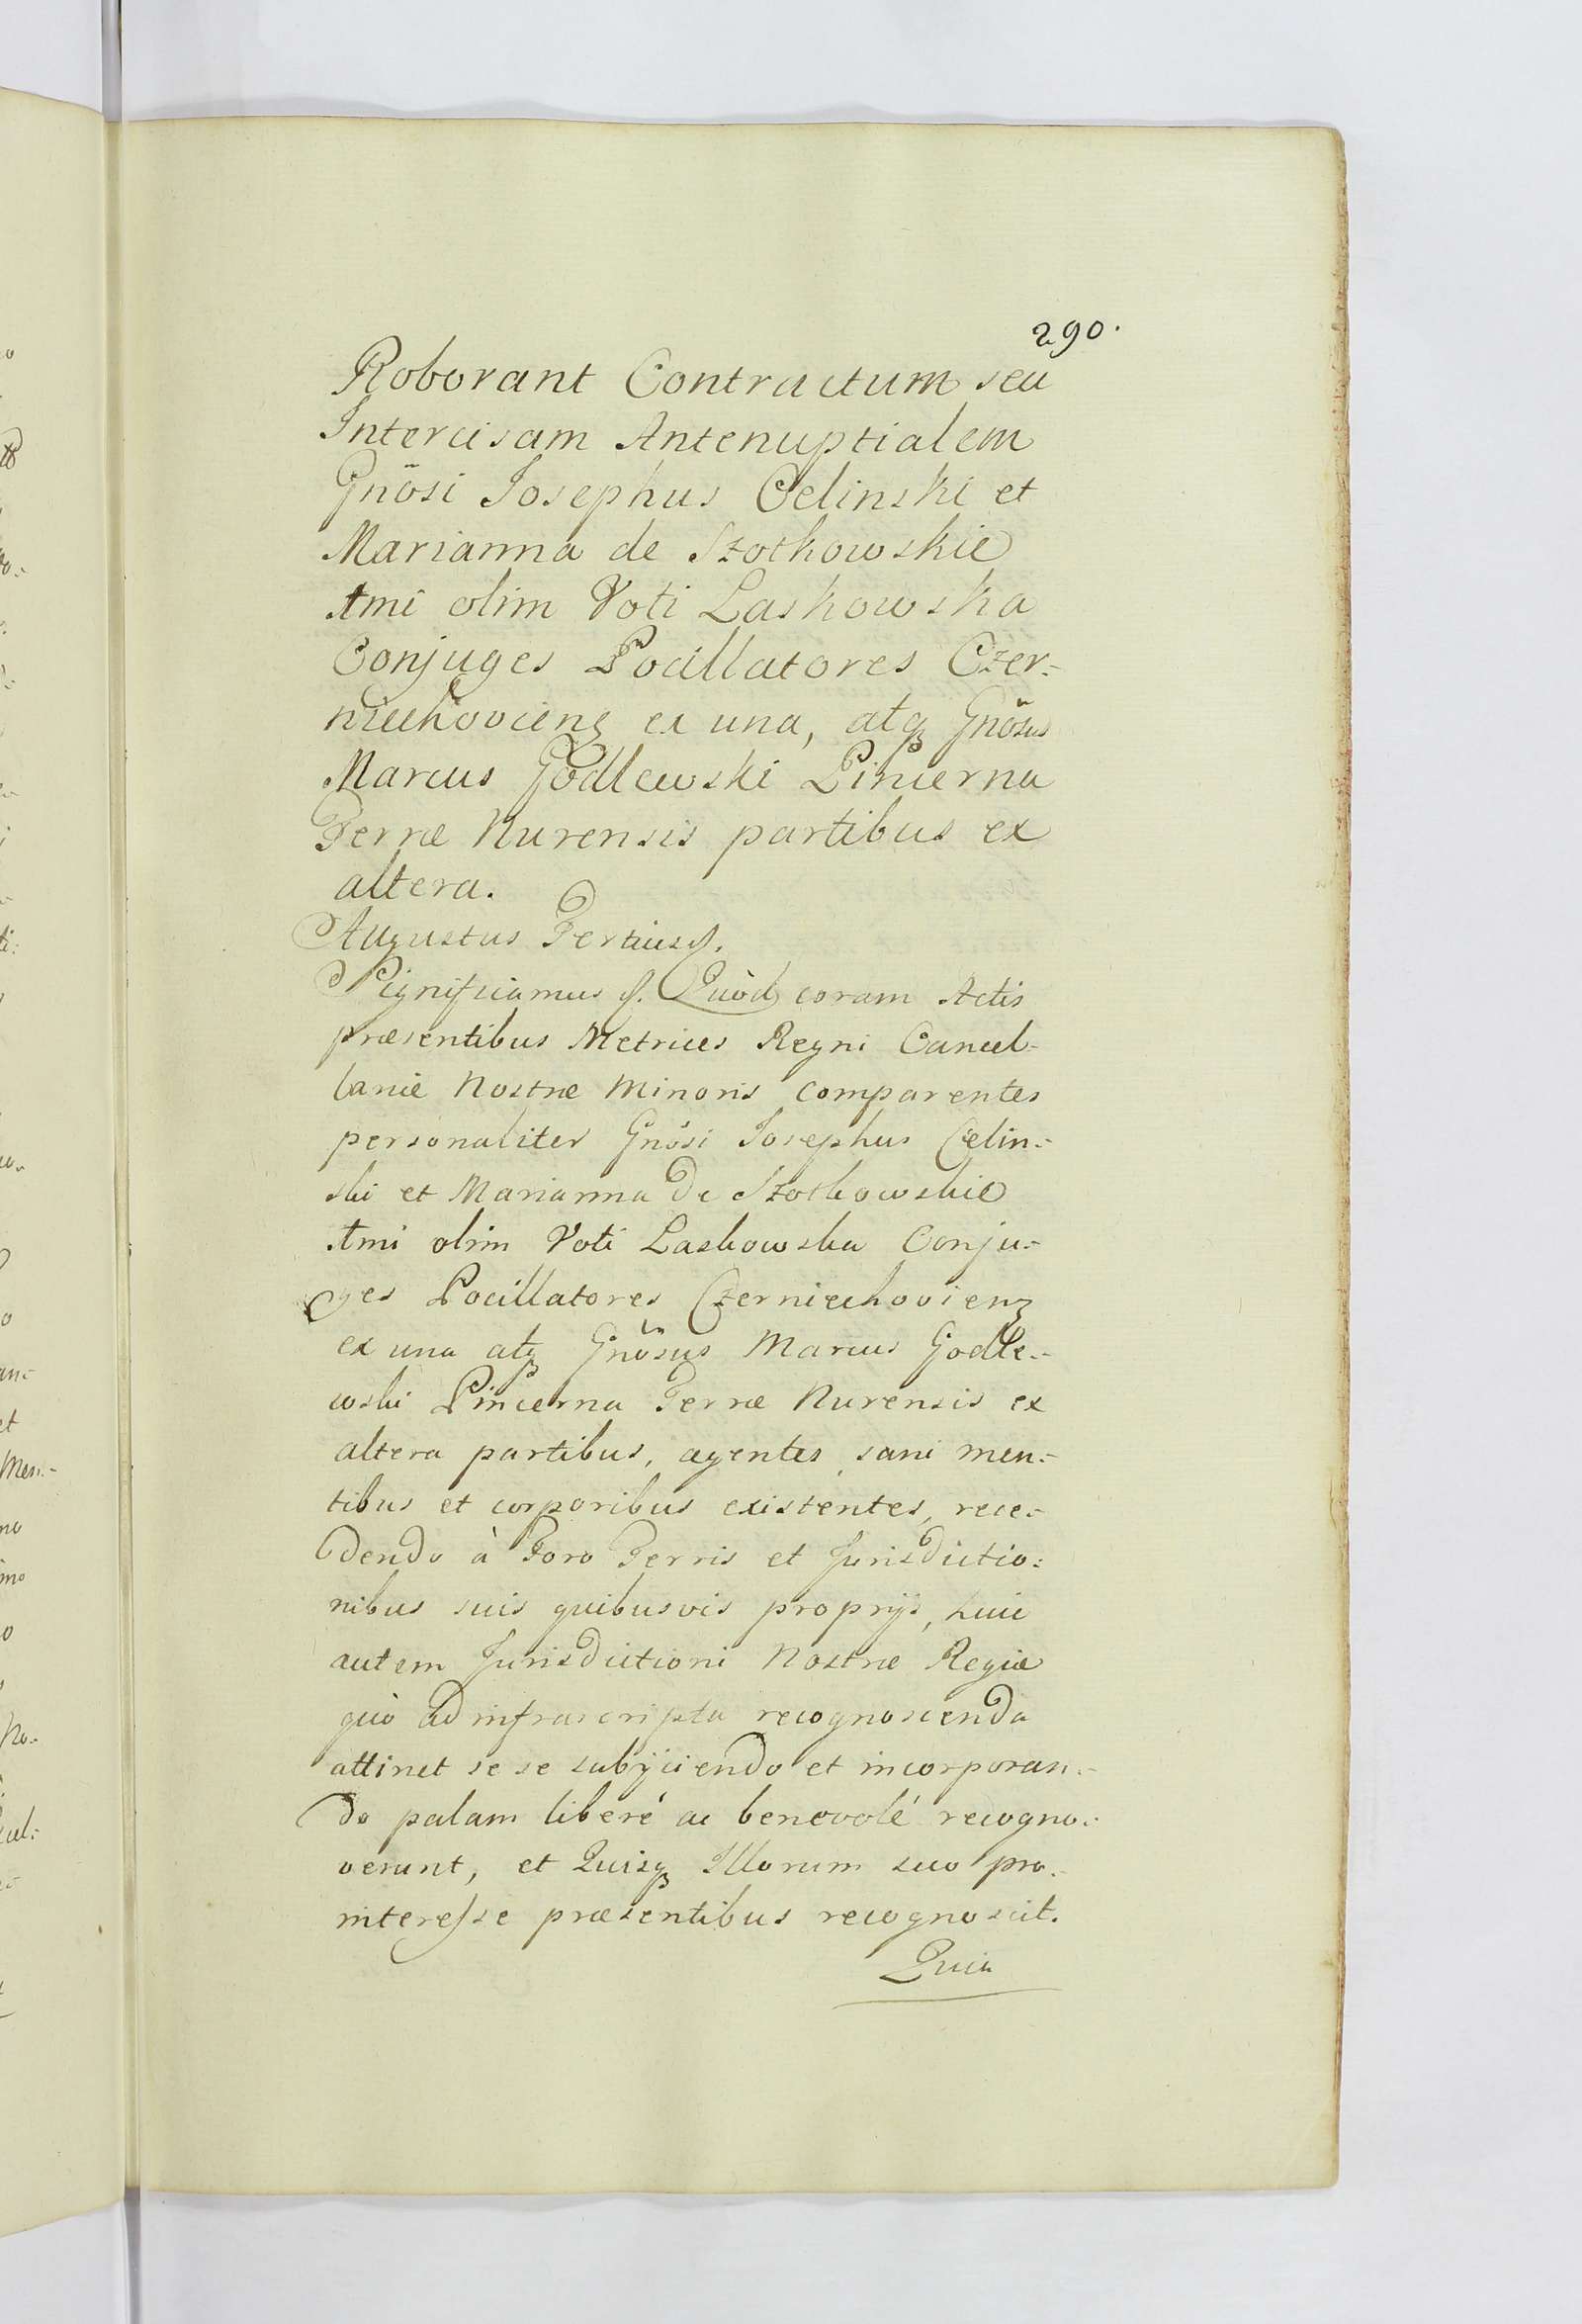 290.
Roborant Contractum seu
Intercisam Antenuptialem
Gnõsi Josephus Celinski et
Marianna de Szotkowskie
1mi olim Voti Laskowska
Conjuges Pocillatores Czer=
niechoviens ex una, atqꝫ Gnõsus
Marcus Godlewski Pincerna
Terræ Nurensis partibus ex
altera.
Augustus Tertius
Significamus Quòd coram Actis
præsentibus Metrices Regni Cancel=
lariæ Nostræ Minoris comparentes
personaliter Gnõsi Josephus Celin=
ski et Marianna de Szotkowskie
1mi olim Voti Laskowska Conju=
ges Pocillatores Czerniechoviens
ex una atqꝫ Gnõsus Marcus Godle=
wski Pincerna Terræ Nurensis ex
altera partibus, agentes sani men=
tibus et corporibus existentes, rece=
dendo à Foro Terris et Jurisdictio=
nibus suis quibusvis proprijs, huic
autem Jurisdictioni Nostræ Regiæ
quò ad infrascripta recognoscenda
attinet se se subijciendo et incorporan=
do palam liberé ac benevolé recogno=
verunt, et Quisqꝫ Illorum suo pro
interesse præsentibus recognoscit.
Quia